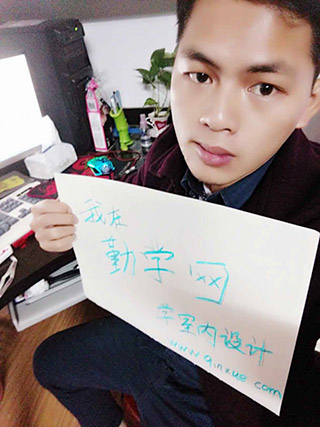 我在
勤学网
学室内设计
www.qinxue.com